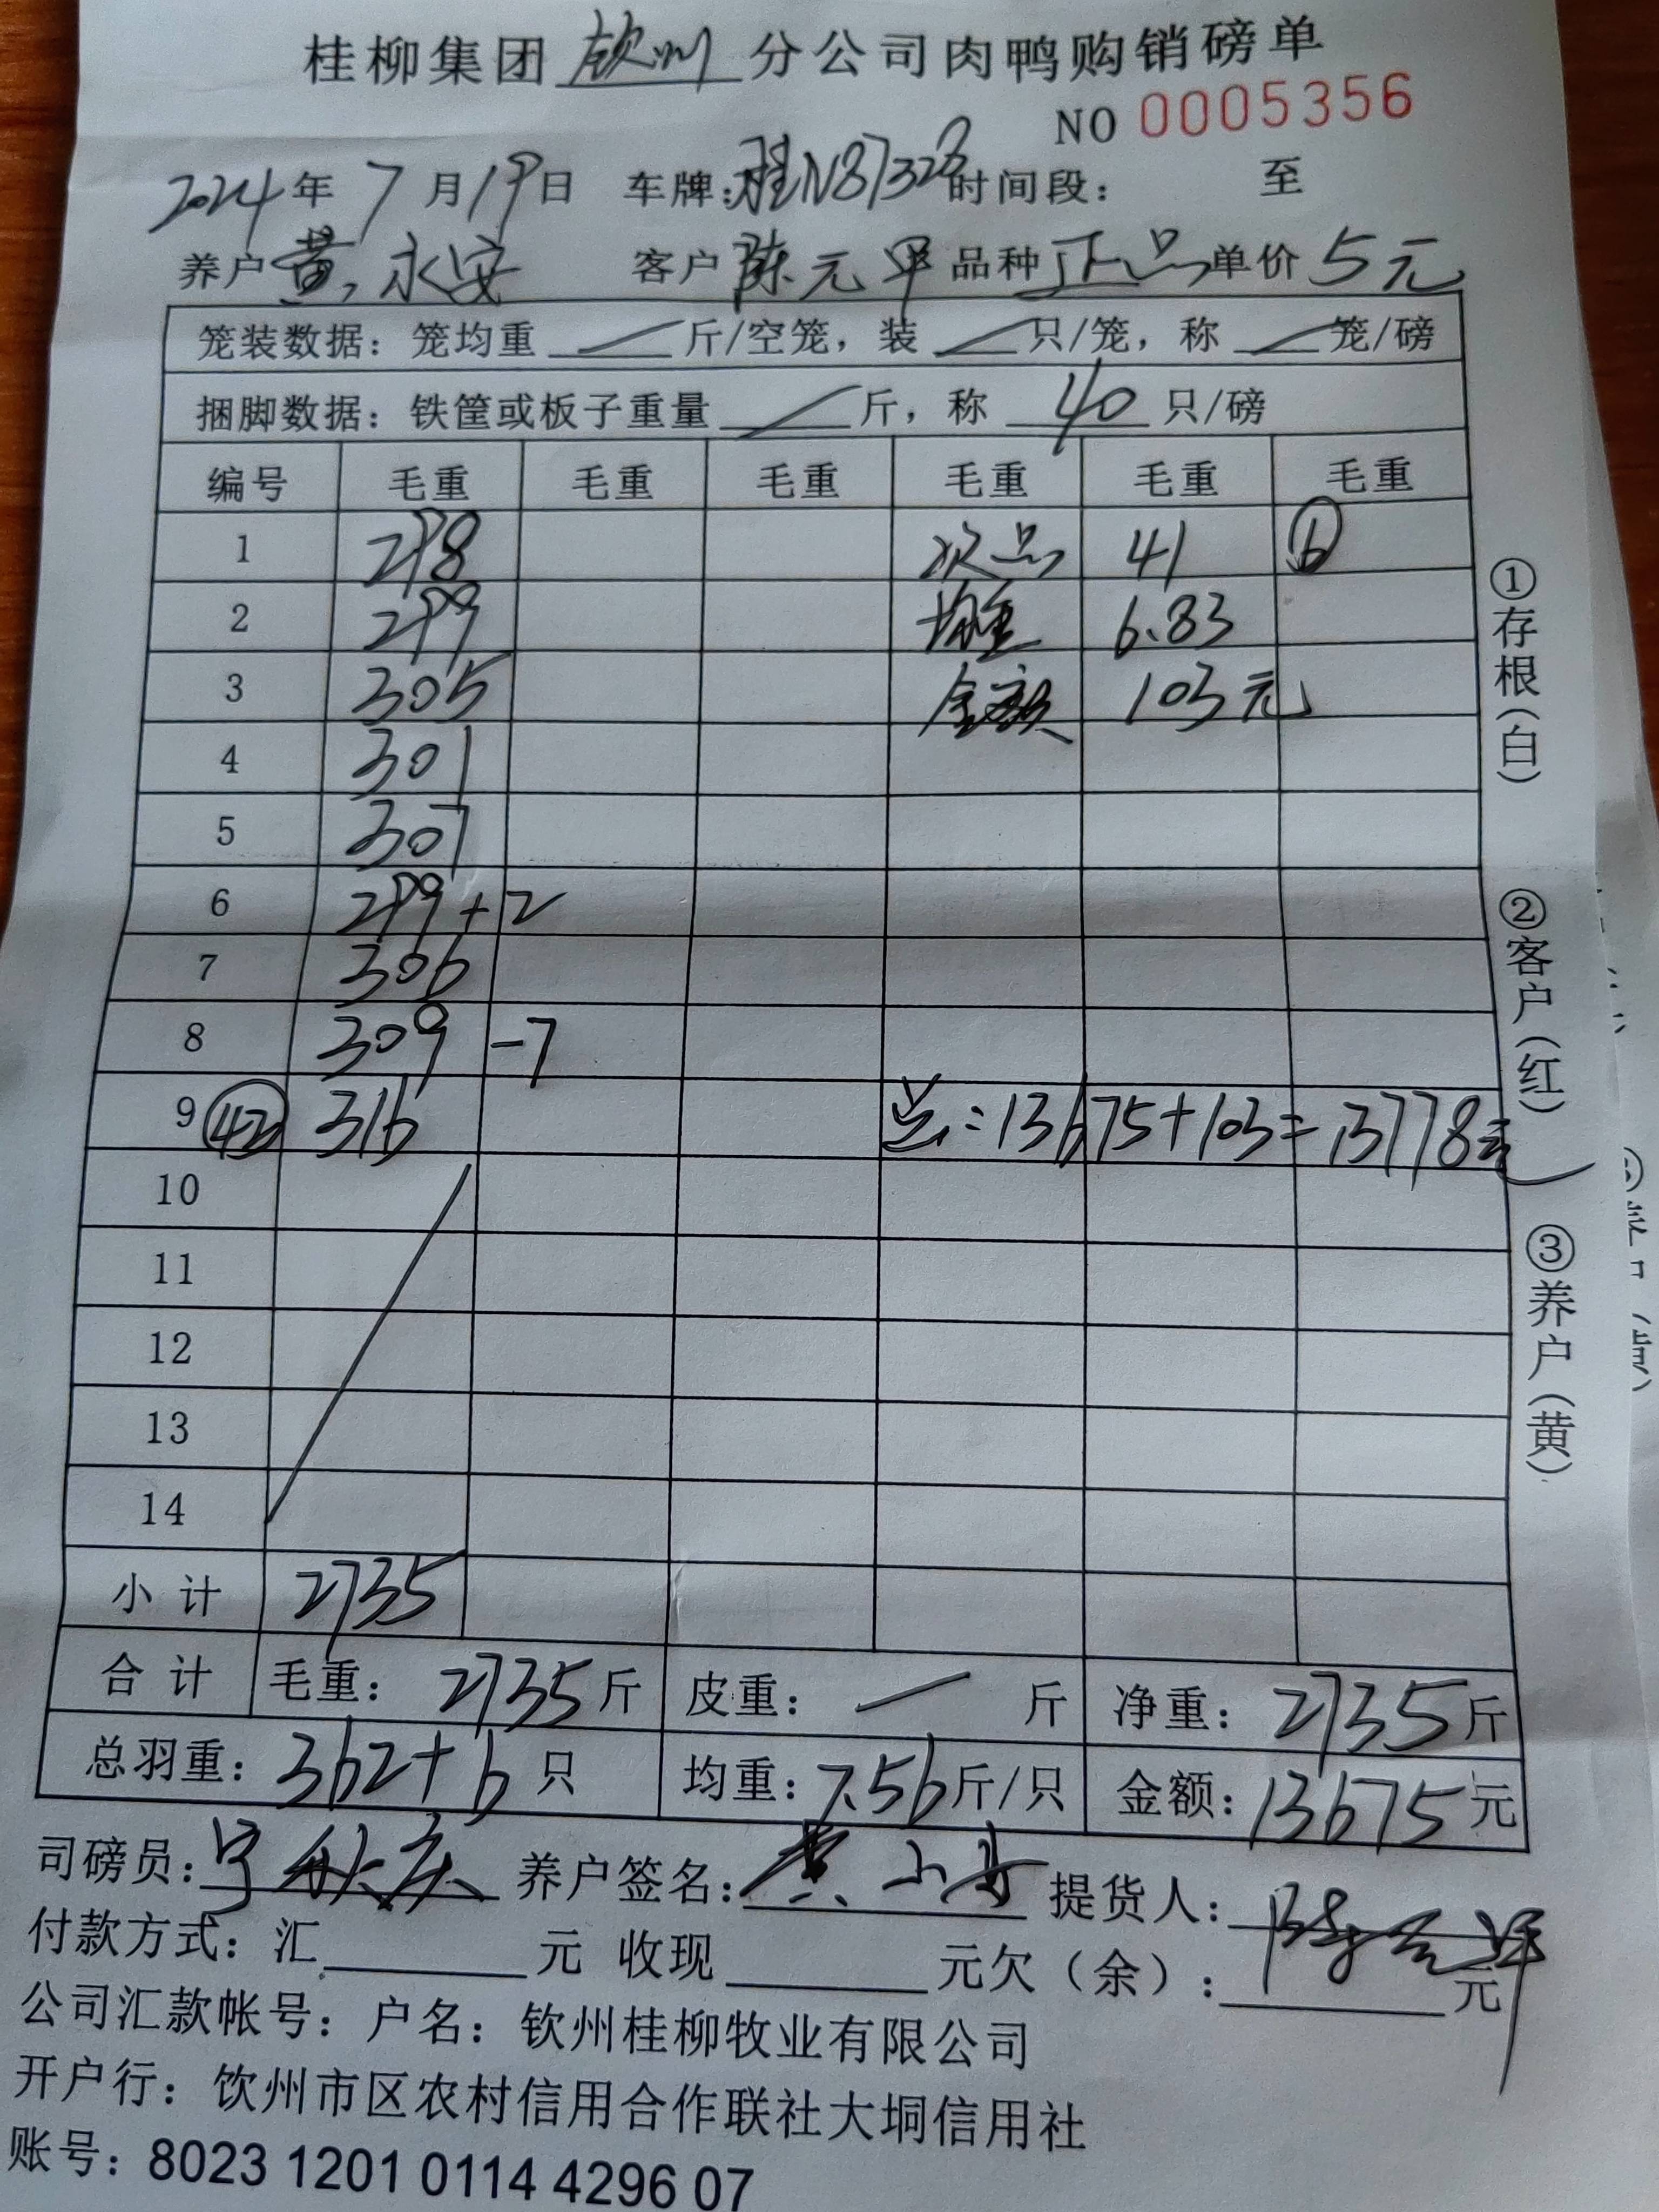 桂柳集团钦州分公司肉鸭购销磅单
NO 0005356
2024年7月19日 车牌:桂N87328 时间段: 至
养户 黄永安 客户 陈元 品种 正品 单价 5元
笼装数据: 笼均重 斤/空笼, 装 只/笼, 称 笼/磅
捆脚数据: 铁筐或板子重量 斤, 称 40 只/磅
编号 毛重 毛重 毛重 毛重 毛重 毛重
1 298 次品 41 ⑥
2 299 均重 6.83
3 305 金额 103元
4 301
5 307
6 299 +2
7 306
8 309 -7
9 ㊷ 316 总:13675+103=13778元
10
11
12
13
14
小计 2735
合计 毛重: 2735斤 皮重: 斤 净重: 2735斤
总羽重: 362+6 只 均重: 7.56斤/只 金额: 13675元
司磅员: 养户签名: 黄 提货人:
付款方式: 汇 元 收现 元欠(余): 元
公司汇款帐号: 户名: 钦州桂柳牧业有限公司
开户行: 饮州市区农村信用合作联社大垌信用社
账号: 8023 1201 0114 4296 07
①存根(白)
②客户(红)
③养户(黄)